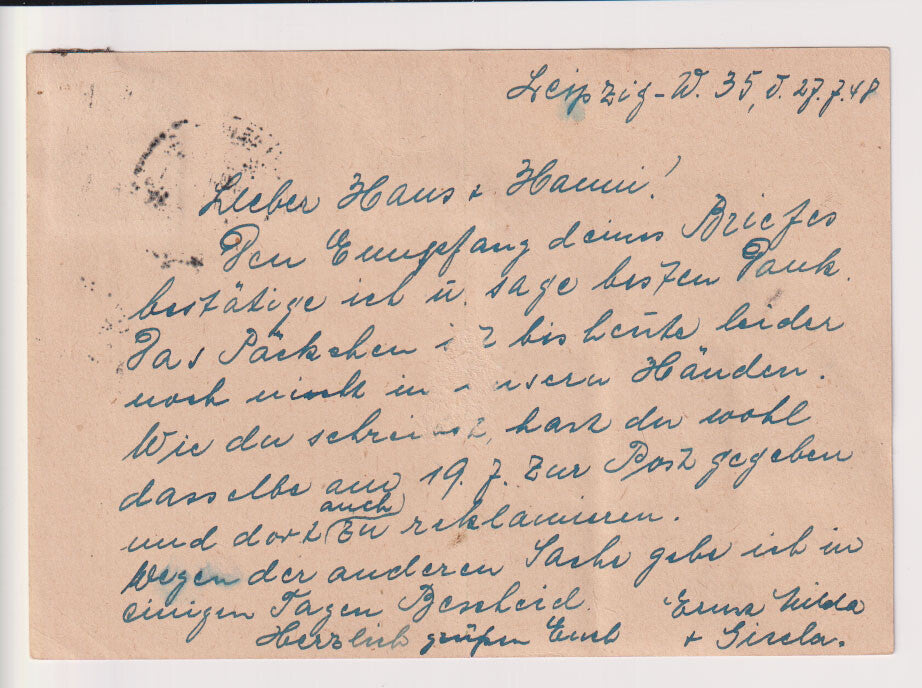 Leipzig-W. 35, d. 27.7.48
Lieber Hans + Hanni!
Den Empfang deines Briefes
bestätige ich u. sage besten Dank.
Das Päckchen ist bis heute leider
noch nicht in unsern Händen.
Wie du schreibst, hast du wohl
dasselbe am 19.7. zur Post gegeben
auch
und dort zu reklamieren.
Wegen der anderen Sache gebe ich in
einigen Tagen Bescheid.
Herzlich grüßen Euch Ernst Hilda
+ Gisela.